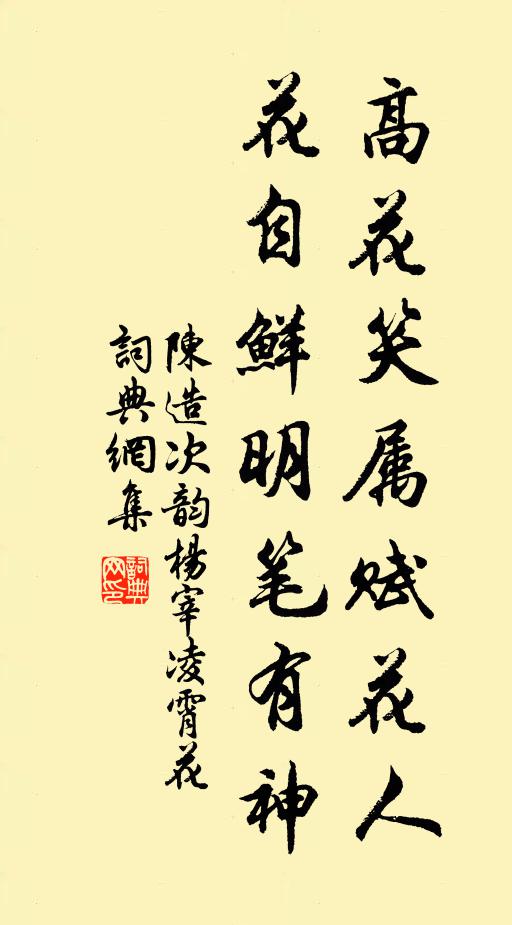 高花笑属赋花人
花自鮮明笔有神
陳造次韵楊宰凌霄花
詞典網集
詞典网印